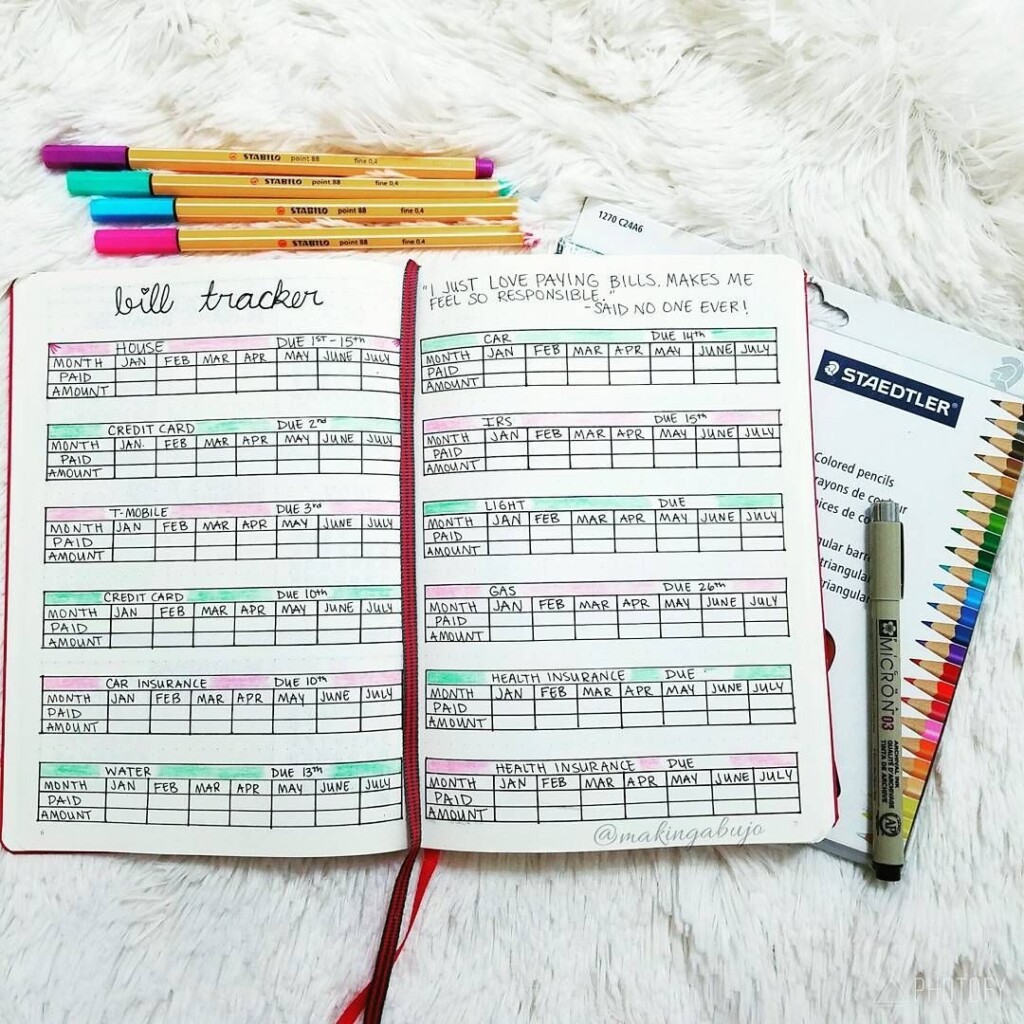 STABILO point 88 fine 0,4
STABILO point 88 fine 0,4
STABILO point 88 fine 0,4
STABILO point 88 fine 0,4
1270 C24A6
bill tracker
HOUSE DUE 1ST - 15th
MONTH JAN FEB MAR APR MAY JUNE JULY
PAID
AMOUNT
CREDIT CARD DUE 2nd
MONTH JAN. FEB MAR APR MAY JUNE JULY
PAID
AMOUNT
T-MOBILE DUE 3rd
MONTH JAN FEB MAR APR MAY JUNE JULY
PAID
AMOUNT
CREDIT CARD DUE 10th
MONTH JAN FEB MAR APR MAY JUNE JULY
PAID
AMOUNT
CAR INSURANCE DUE 10th
MONTH JAN FEB MAR APR MAY JUNE JULY
PAID
AMOUNT
WATER DUE 13th
MONTH JAN FEB MAR APR MAY JUNE JULY
PAID
AMOUNT
6
"I JUST LOVE PAYING BILLS, MAKES ME
FEEL SO RESPONSIBLE."
-SAID NO ONE EVER!
CAR DUE 14th
MONTH JAN FEB MAR APR MAY JUNE JULY
PAID
AMOUNT
IRS DUE 15th
MONTH JAN FEB MAR APR MAY JUNE JULY
PAID
AMOUNT
LIGHT DUE
MONTH JAN FEB MAR APR MAY JUNE JULY
PAID
AMOUNT
GAS DUE 26th
MONTH JAN FEB MAR APR MAY JUNE JULY
PAID
AMOUNT
HEALTH INSURANCE DUE
MONTH JAN FEB MAR APR MAY JUNE JULY
PAID
AMOUNT
HEALTH INSURANCE DUE
MONTH JAN FEB MAR APR MAY JUNE JULY
PAID
AMOUNT
@makingabujo
STAEDTLER
Colored pencils
de
de
MICRON 03
ARCHIVAL INK
QUALITÉ D'ARCHIVAGE
TINTA DE ARCHIVE
AP
PHOTOFY